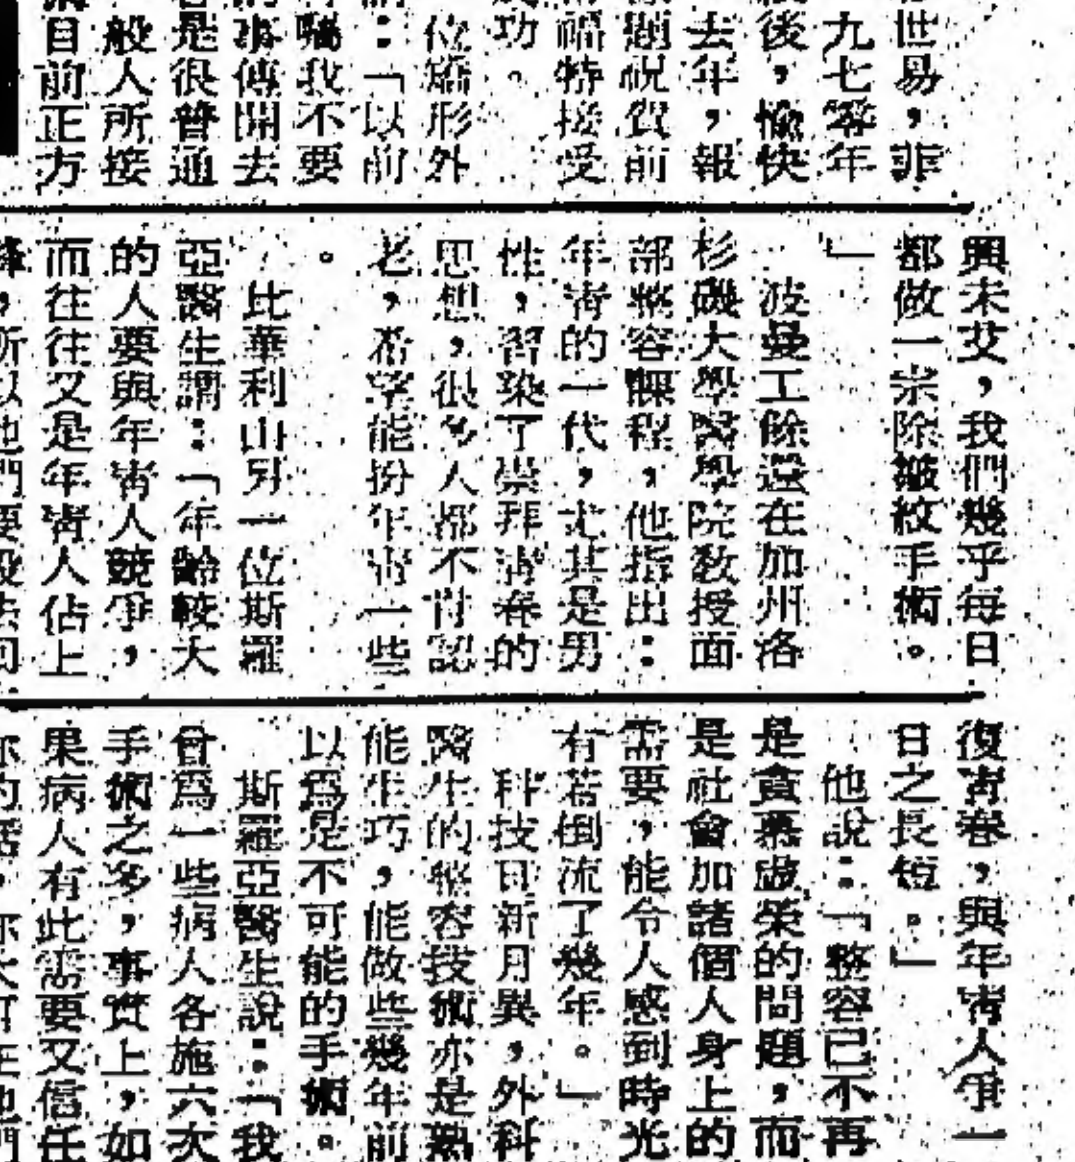 世易，非
九七零年
後，愉快
去年，報
題祝賀前
福特接受
功。
位矯形外
：「以前
囑我不要
事傳開去
是很普通
般人所接
目前正方
興未艾，我們幾乎每日
都做一宗除皺紋手術。
」
波曼工餘還在加州洛
杉磯大學醫學院教授面
部整容課程，他指出：
年青的一代，尤其是男
性，習染了崇拜青春的
思想，很多人都不肯認
老，希望能扮年青一些
。
此華利山另一位斯羅
亞醫生謂：「年齡較大
的人要與年青人競爭，
而往往又是年青人佔上
，所以他們要設法回
復青春，與年青人爭一
日之長短。」
他說：「整容已不再
是貪慕虛榮的問題，而
是社會加諸個人身上的
需要，能令人感到時光
有若倒流了幾年。」
科技日新月異，外科
醫生的整容技術亦是熟
能生巧，能做些幾年前
以爲是不可能的手術。
斯羅亞醫生說：「我
曾爲一些病人各施六次
手術之多，事實上，如
果病人有此需要又信任
你的話，你大可在他們